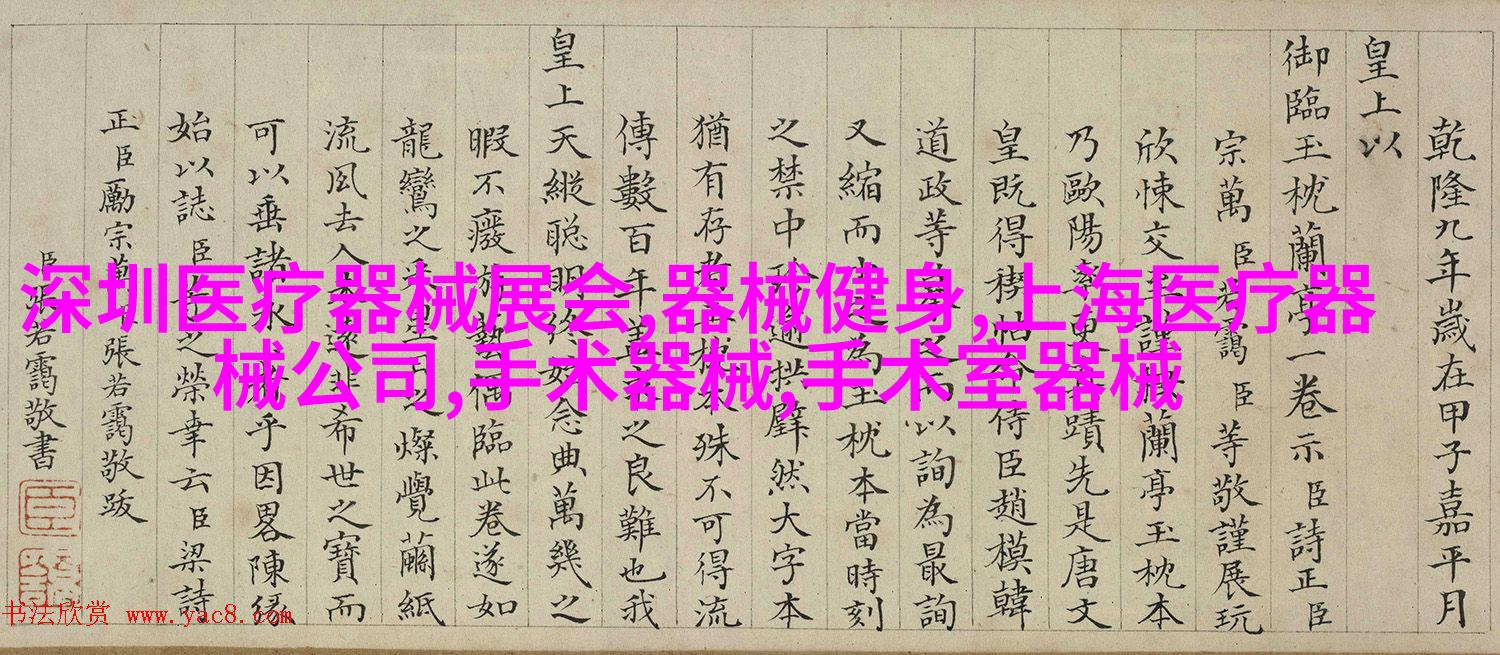 乾隆九年歲在甲子嘉平月
皇上以
御臨玉枕蘭亭一卷示臣詩正臣
宗萬臣若靄臣等敬謹展玩
欣悚交謹蘭亭玉枕本
乃歐陽率更蹟先是唐文
皇既得禊帖命侍臣趙模韓
道政等以詢為最詢
又縮而小之為玉枕本當時刻
之禁中拱璧然大字本
猶有存者殊不可得流
傳數百年之良難也我
皇上天縱聰明終始念典萬幾之
暇不廢游藝偶臨此卷遂如
龍鸞之之燦覺繭紙
流風去人未遠非希世之寶而
可以垂諸永乎因畧陳緣
始以誌臣等之榮幸云臣梁詩
正臣勵宗萬臣張若靄敬跋
臣張若靄敬書
臣
深圳医疗器械展会,器械健身,上海医疗器
械公司,手术器械,手术室器械
书法欣赏 www.yac8.com